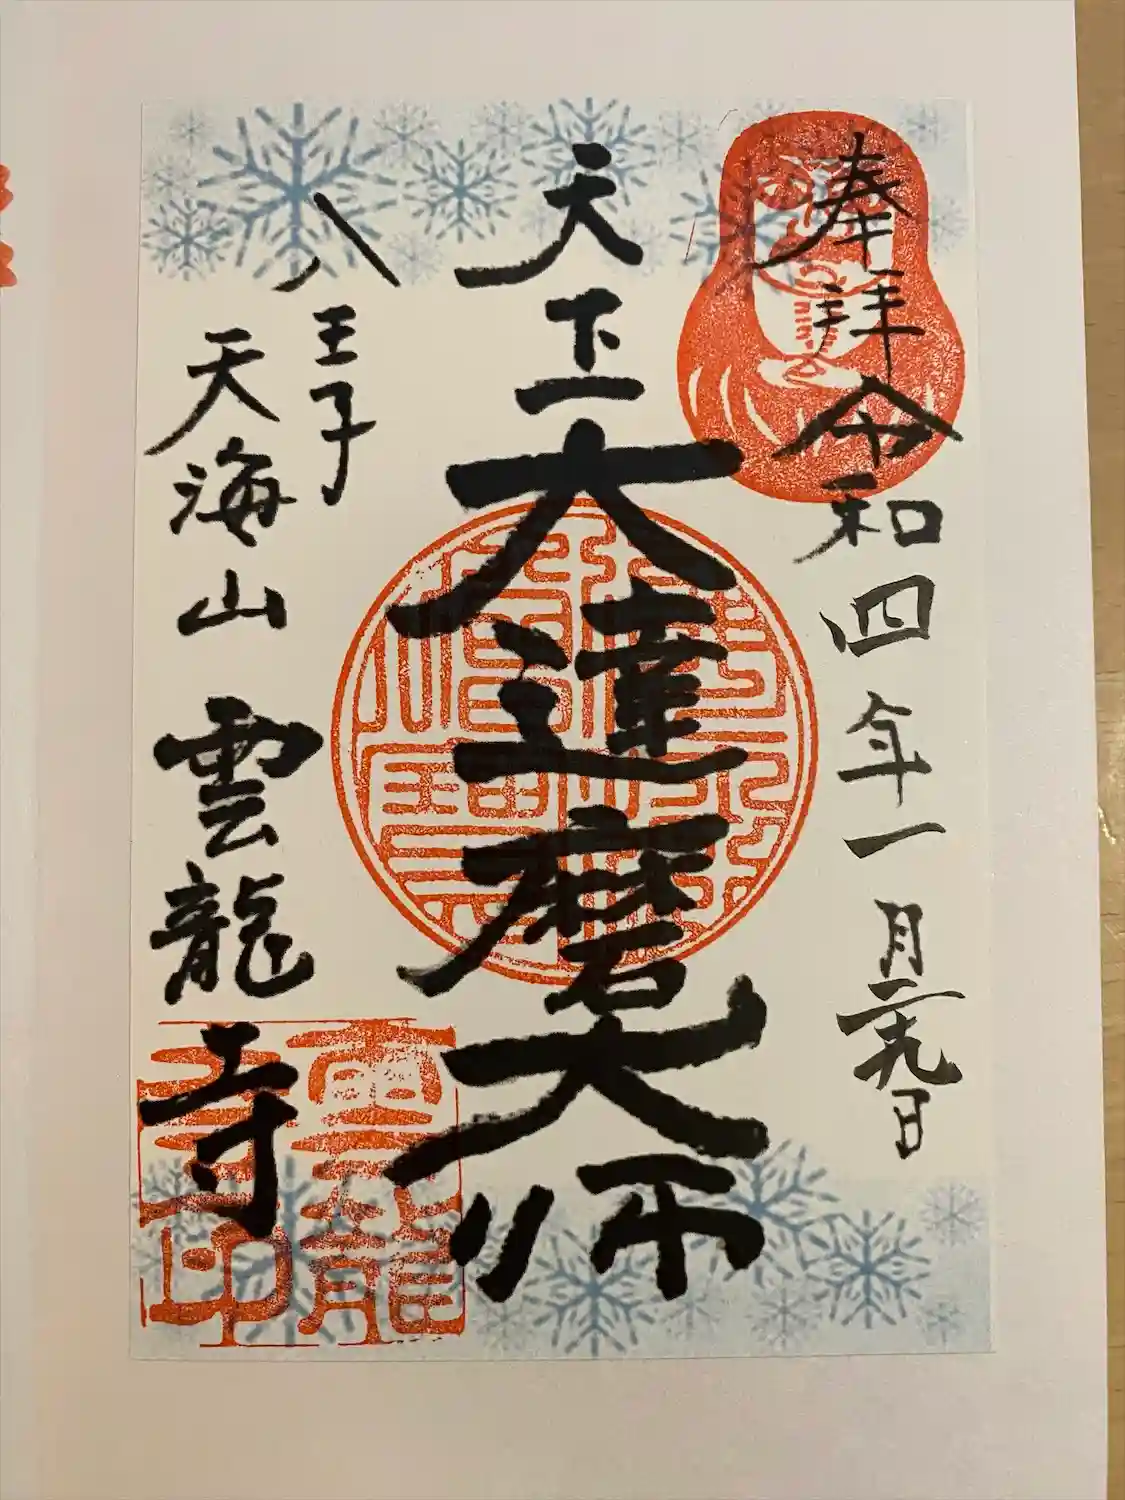 奉拝 令和四年一月二十九日
天下一大達磨大師
八王子
天海山 雲龍寺
雲龍
寺印